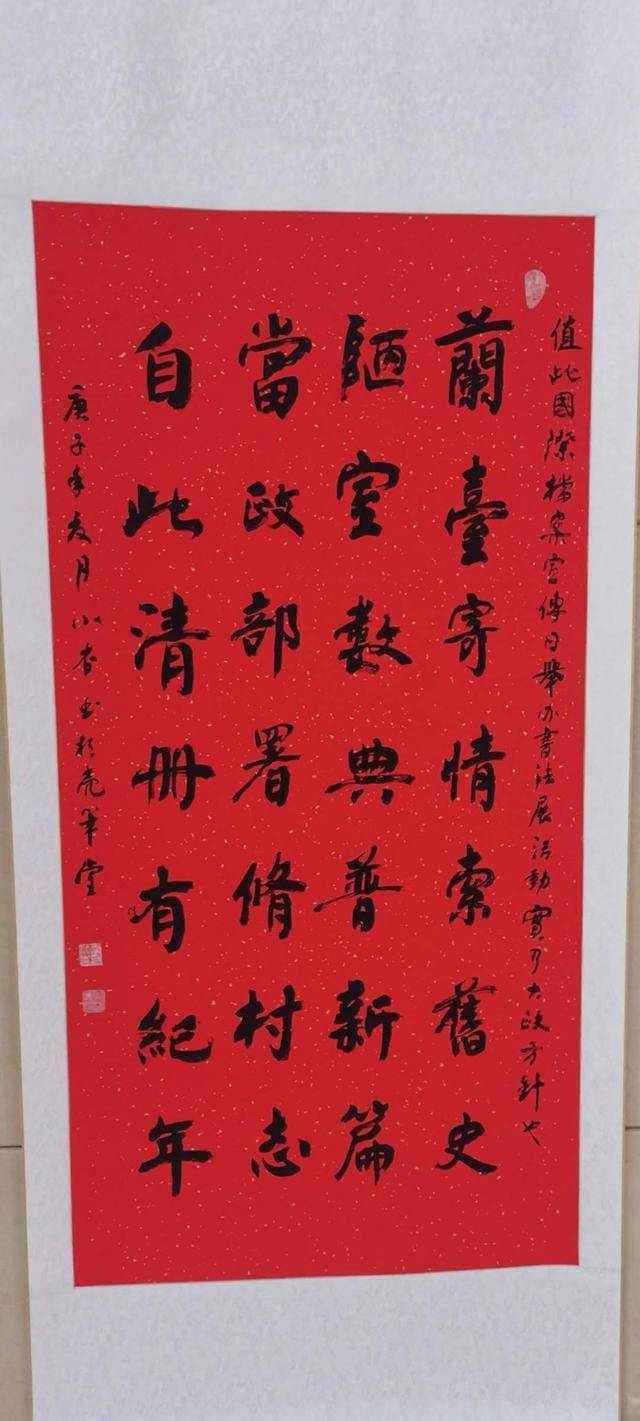 值此國際檔案宣傳日舉办書法展活動實乃大政方針也
蘭臺寄情索舊史
陋室數典普新篇
當政部署脩村志
自此清册有紀年
庚子年友月小杏书於亮軍堂